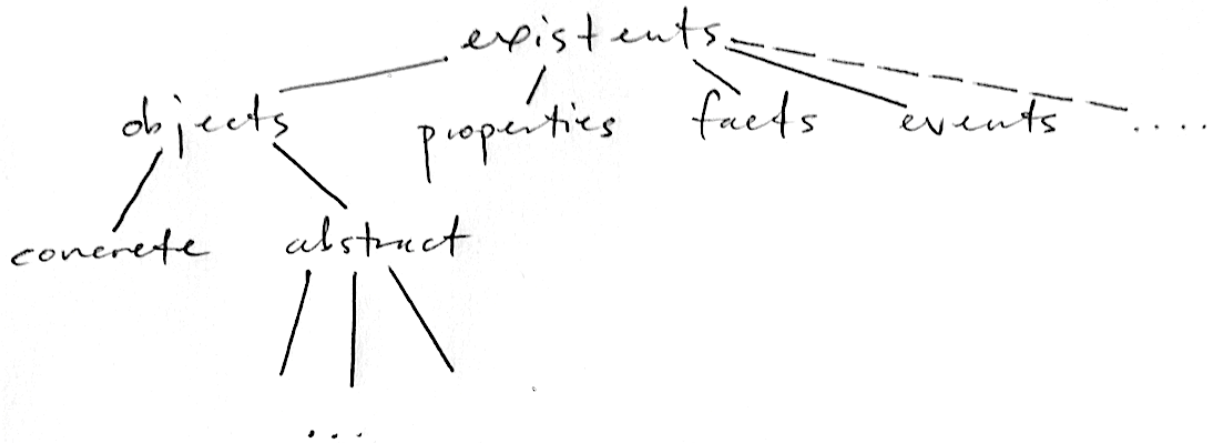 existents
objects properties facts events ....
concrete abstract
...